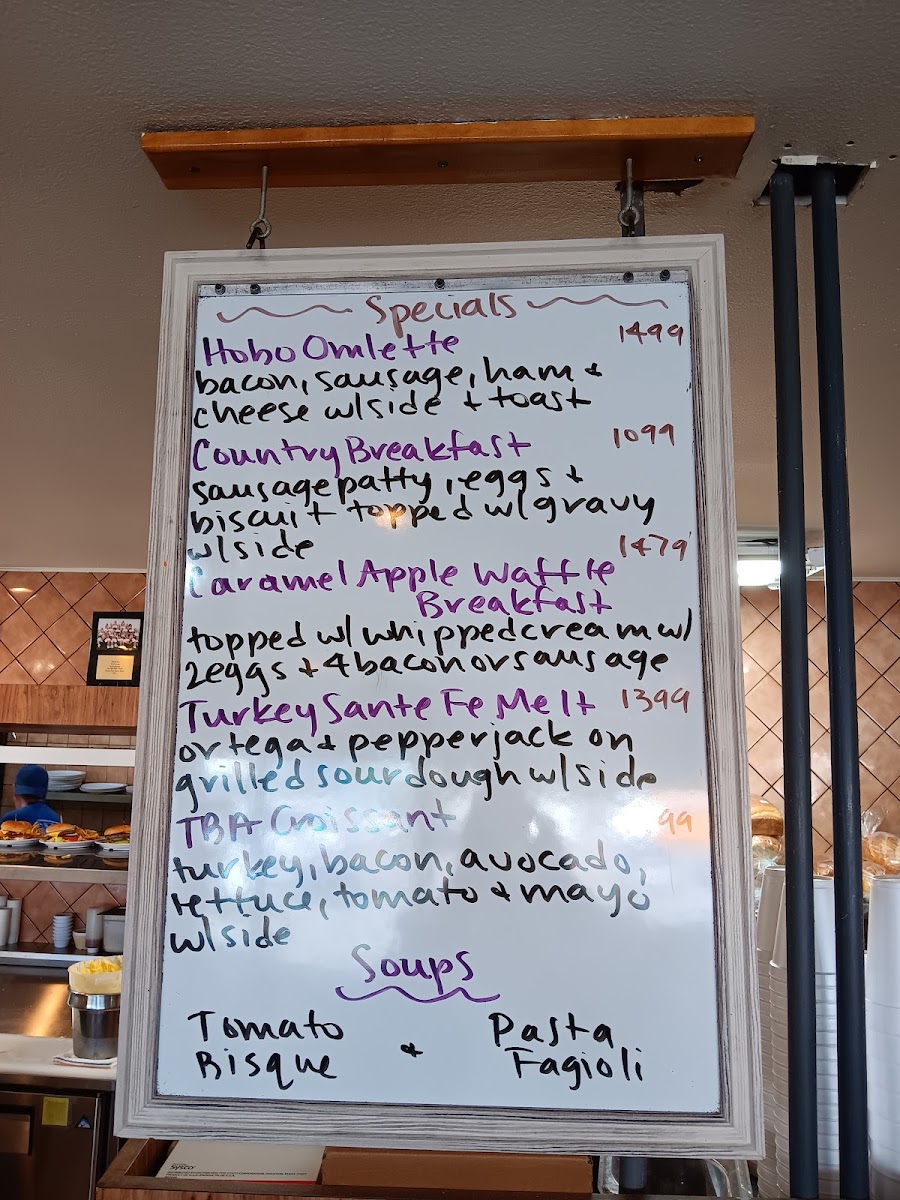 Specials
Hobo Omlette 1499
bacon, sausage, ham &
cheese w/side & toast
Country Breakfast 1099
sausage patty, eggs &
biscuit topped w/gravy
w/side
Caramel Apple Waffle 1479
Breakfast
topped w/ whipped cream w/
2 eggs & 4 bacon or sausage
Turkey Sante Fe Melt 1399
ortega & pepperjack on
grilled sourdough w/side
TBA Croissant 99
turkey, bacon, avocado,
lettuce, tomato & mayo
w/side
Soups
Tomato & Pasta
Bisque Fagioli
Sysco